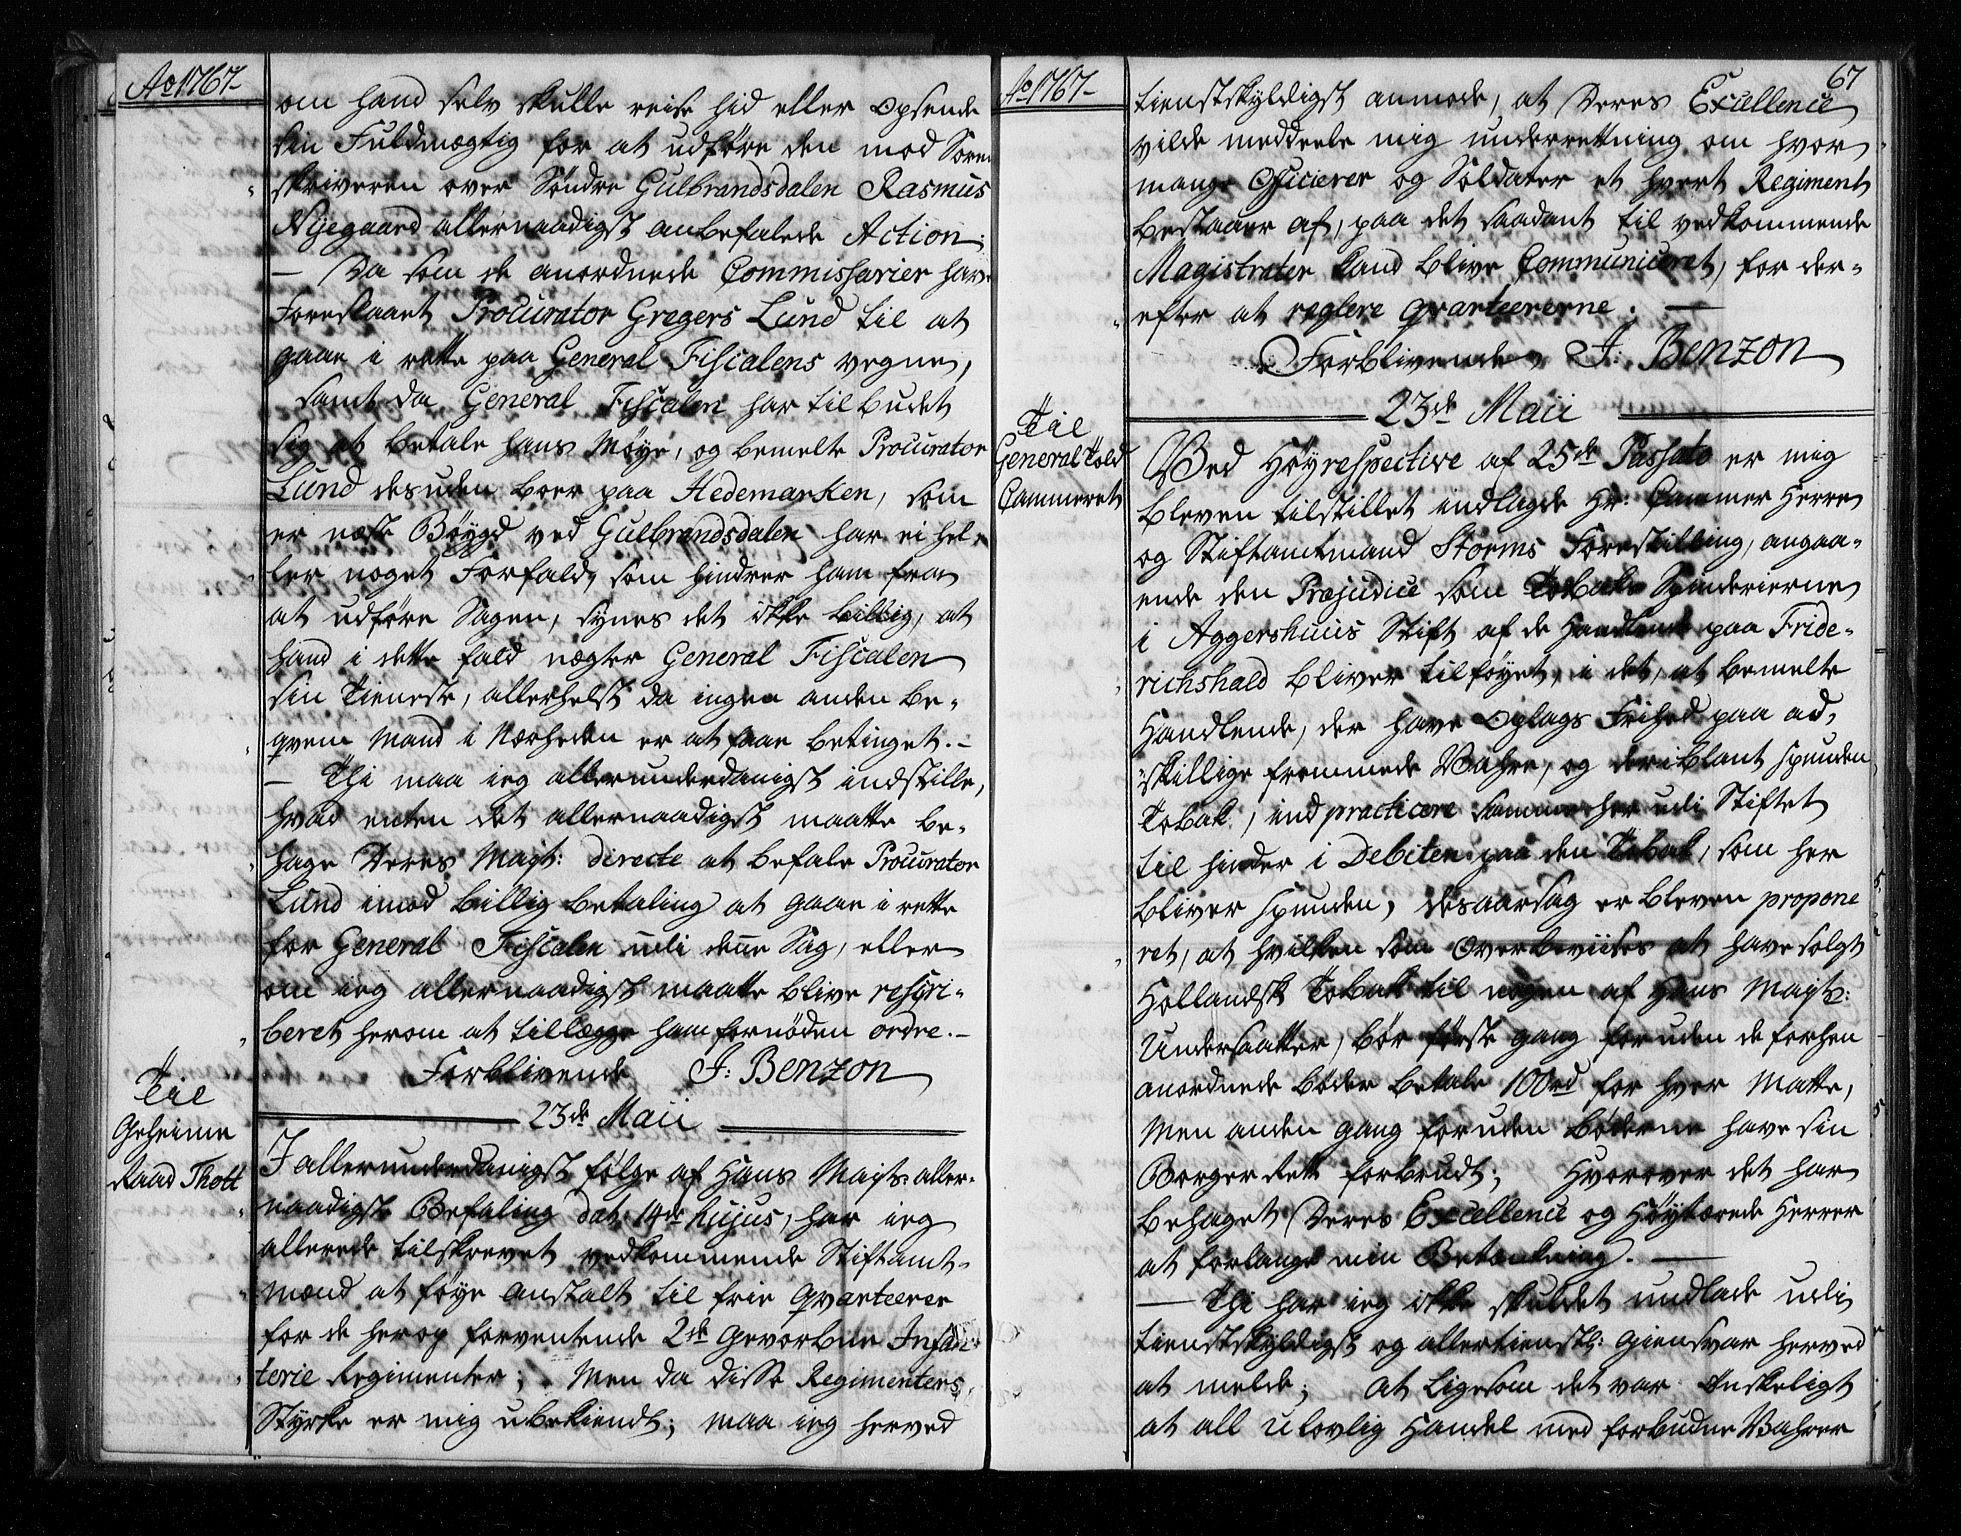 Ao 1767
om hand selv skulle reise hid eller opsende
sin Fuldmægtig for at udføre den mod Soren
skriveren over Søndre Gulbrandsdalen Rasmus
Nyegaard allernaadigst anbefalede Action;
— Da som de anordnede Commissarier have
Foreslaaet Procurator Gregers Lund til at
gaae i rette paa General Fiscalens vegne,
samt da General Fiscalen har tilbudet
sig at betale hans Møye, og bemelte Procurator
Lund desuden boer paa Hedemarken, som
er næste Bøygd ved Gulbrandsdalen har ei hel-
ler noget Forfald, som hindrer ham fra
at udføre Sagen, synes det ikke billig, at
hand i dette fald nægter General Fiscalen
sin Tieneste, allerhelst da ingen anden be-
qvem Mand i Nærheden er at faae betinget.-
— Thi maa ieg allerunderdanigst indstille,
hvad enten det allernaadigst maatte be-
hage Deres Mayt: directe at befale Procurator
Lund imod billig betaling at gaae i rette
for General Fiscalen udi denne Sag, eller
om ieg allernaadigst maatte blive rescri-
beret herom at tillægge ham fornøden ordre.-
Forblivende J: Benzon
23de Maii
Til
Geheime
Raad Thott
I allerunderdanigst følge af Hans Mayts: aller-
naadigste Befaling dat: 14de hujus, har ieg
allerede tilskrevet vedkommende Stiftamt-
mænd at føye anstalt til frie qvarteerer
for de herop forventende 2de Gevorbne Infan-
terie Regimenter; Men da disse Regimenters
Styrke er mig ubekiendt; maa ieg herved
Ao 1767
67
tienstskyldigst anmode, at Deres Excellence
vilde meddeele mig underrettning om hvor
mange Officierer og Soldater et hvert Regiment
bestaaer af, paa det saadant til vedkommende
Magistrater kand blive Communiceret, for der-
efter at reglere qvarteererne. —
Forblivende J: Benzon
23de Maii
Til
General Told
Cammeret
Ved Høyrespective af 25de Passato er mig
bleven tilstillet indlagde Hr: Cammer Herre
og Stiftamtmand Storms Forestilling, angaa-
ende den Præjudice som Tobaks Spinderierne
i Aggershuus Stift af de Handlende paa Fride-
richshald bliver tilføyet, i det, at bemelte
Handlende, der have Oplags Frihed paa ad-
skillige fremmede Vahre, og deriblant spunden
Tobak, indpracticere samme her udi Stiftet
til hinder i Debiten paa den Tobak, som her
bliver spunden, desaarsag er bleven propone
ret, at hvilken som overbeviises at have solgt
Hollandsk Tobak til nogen af Hans Mayts:
Undersaatter, bør første gang foruden de forhen
anordnede bøder betale 100rd for hver Matte,
Men anden gang foruden bøderne have sin
Borger Rett forbrudt; Hvorover det har
behaget Deres Excellence og Høytærede Herrer
at forlange min Betænkning. —
— Thi har ieg ikke skuldet undlade udi
tienstskyldigst og allertienstl: giensvar herved
at melde; At ligesom det var ønskeligt
at all ulovlig Handel med forbudne Vahrer